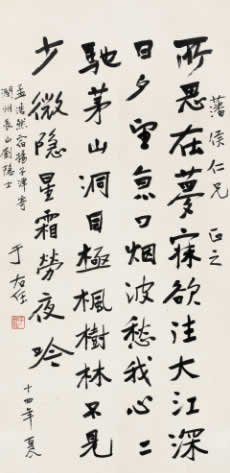 藩侯仁兄 正之
所思在夢寐欲往大江深
日夕望京口烟波愁我心二
馳茅山洞目極楓樹林不見
少微隐星霜勞夜吟
孟浩然宿揚子津寄
潤州長山劉隱士
于右任
十四年暮